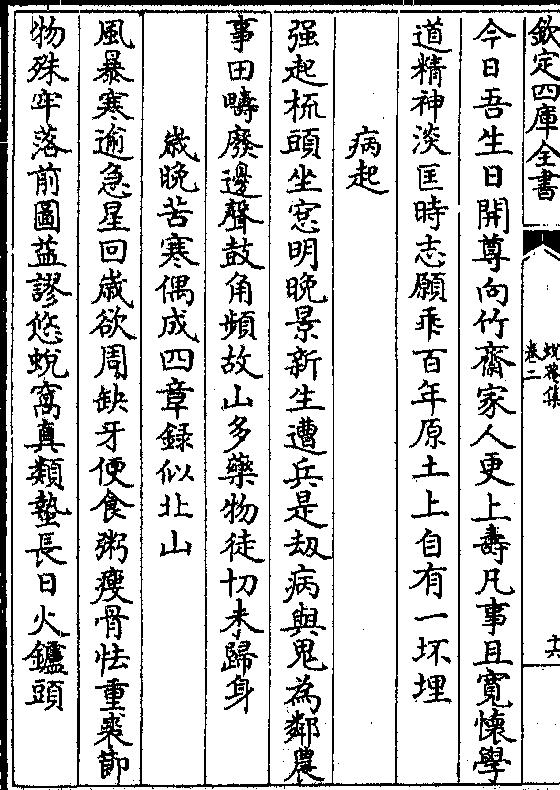 欽定四庫全書
蛻菴集
卷二
十六
今日吾生日開尊向竹齋家人更上壽凡事且寬懷學
道精神淡匡時志願乖百年原土上自有一坏埋
病起
强起梳頭坐窓明晚景新生遭兵是刼病與鬼為鄰農
事田疇廢邊聲鼓角頻故山多藥物徒切未歸身
歲晚苦寒偶成四章録似北山
風暴寒逾急星回歲欲周缺牙便食粥瘦骨怯重裘節
物殊牢落前圖益謬悠蛻窩真類蟄長日火鑪頭